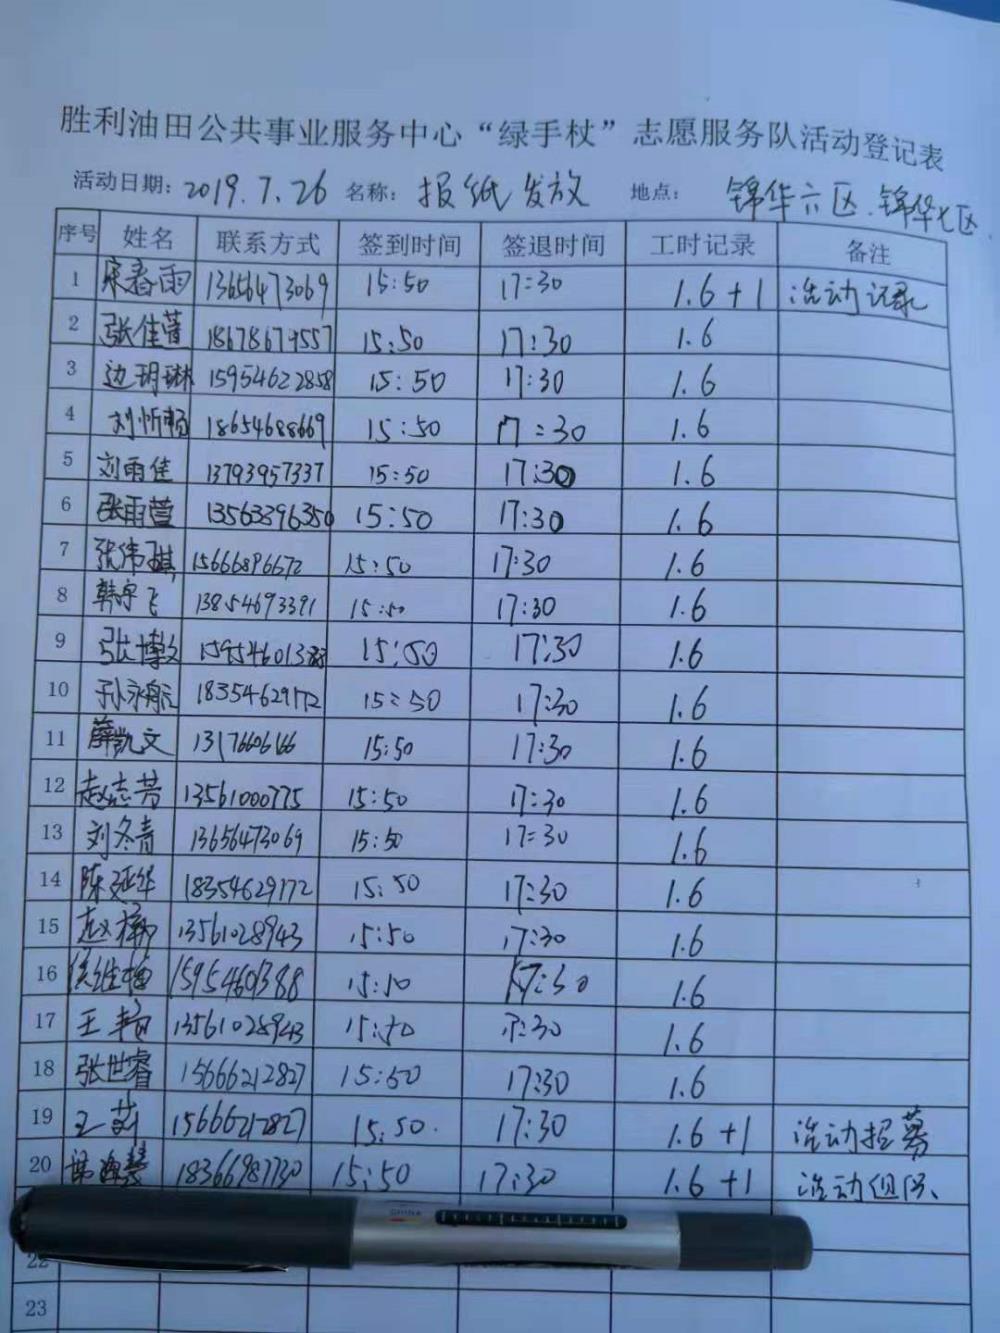 胜利油田公共事业服务中心“绿手杖”志愿服务队活动登记表
活动日期：2019.7.26 名称：报纸发放 地点：锦华六区.锦华七区
序号 姓名 联系方式 签到时间 签退时间 工时记录 备注
1 宋春雨 13656473069 15:50 17:30 1.6+1 活动记录
2 张佳萱 18678679557 15:50 17:30 1.6
3 边玥琳 15954622858 15:50 17:30 1.6
4 刘忻畅 18654688669 15:50 17:30 1.6
5 刘雨佳 13793957337 15:50 17:30 1.6
6 张雨萱 13563396350 15:50 17:30 1.6
7 张伟琪 15666896672 15:50 17:30 1.6
8 韩宇飞 13854693391 15:50 17:30 1.6
9 张博文 15954601388 15:50 17:30 1.6
10 孙永航 18354629172 15:50 17:30 1.6
11 薛凯文 15:50 17:30 1.6
12 赵志芳 13561000775 15:50 17:30 1.6
13 刘冬青 13656473069 15:50 17:30 1.6
14 陈延华 18354629172 15:50 17:30 1.6
15 13561028943 15:50 17:30 1.6
16 侯维梅 15954601388 15:50 17:30 1.6
17 13561028943 15:50 17:30 1.6
18 张世睿 15666212827 15:50 17:30 1.6
19 王莉 15666212827 15:50. 17:30 1.6+1 活动招募
20 18366987730 15:50 17:30 1.6+1 活动组织
22
23